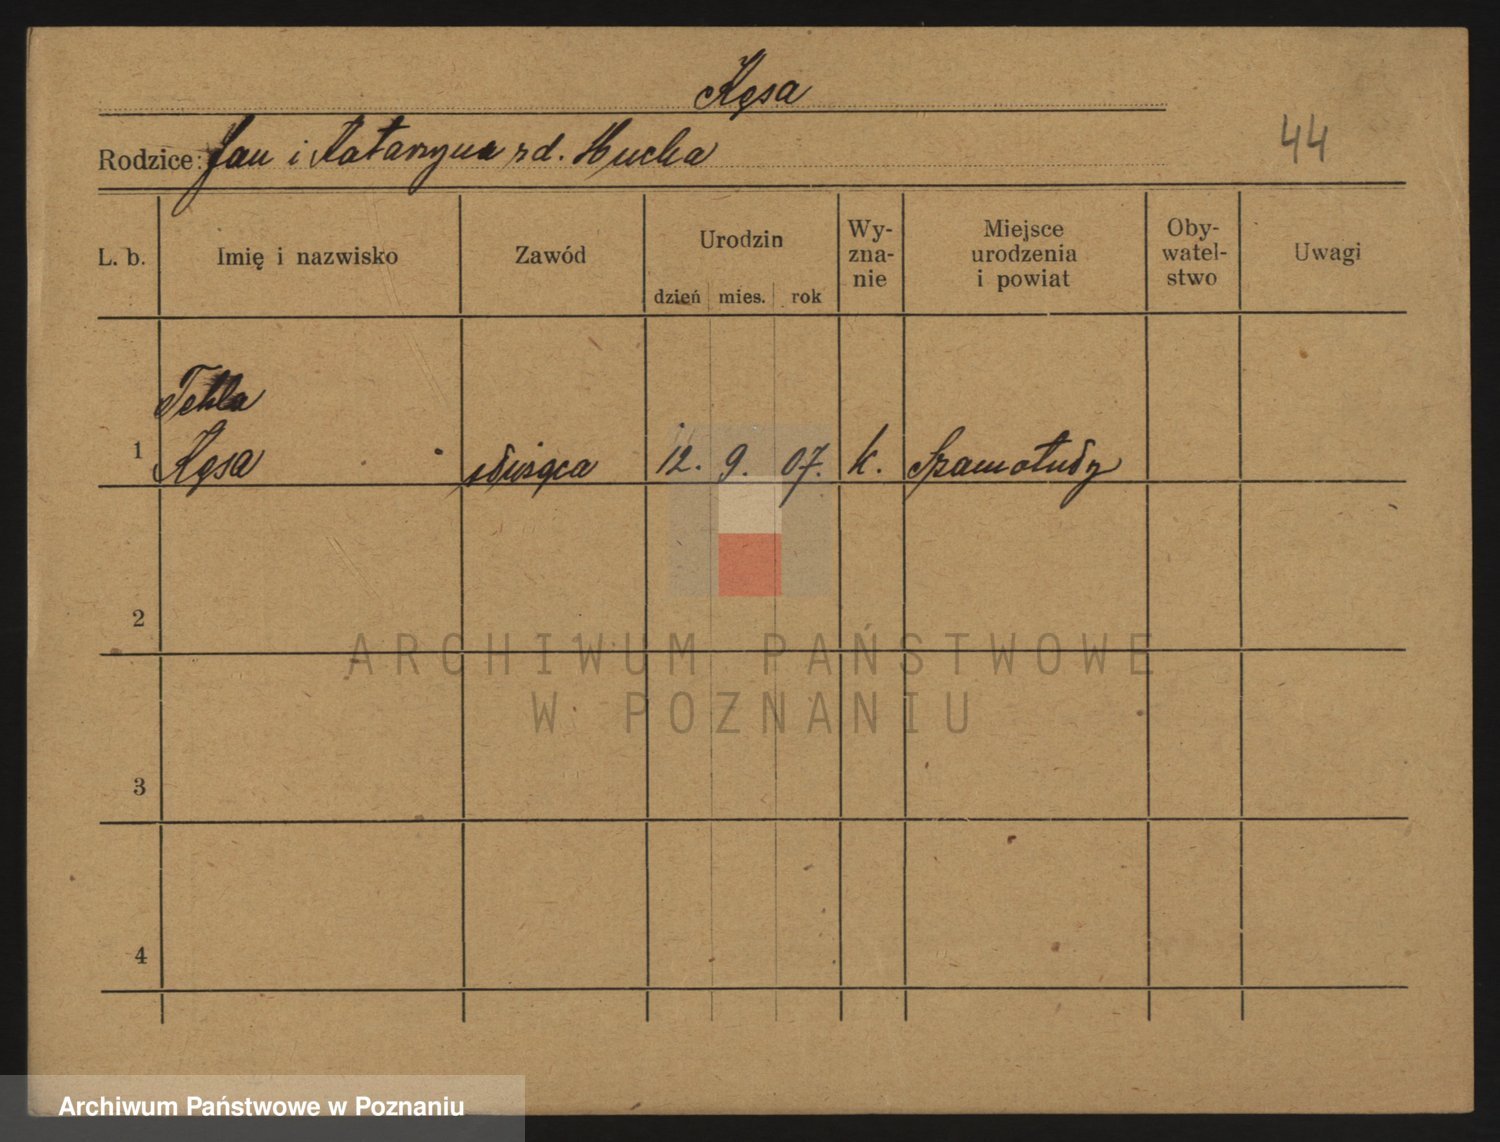 Kęsa
Rodzice: Jan i Katarzyna rd. Mucha
44
L. b.
Imię i nazwisko
Zawód
Urodzin
dzień mies. rok
Wy-
zna-
nie
Miejsce
urodzenia
i powiat
Oby-
watel-
stwo
Uwagi
Tekla
1 Kęsa służąca 12. 9. 07. k. Szamotuły
2
3
4
ARCHIWUM PAŃSTWOWE
W POZNANIU
Archiwum Państwowe w Poznaniu